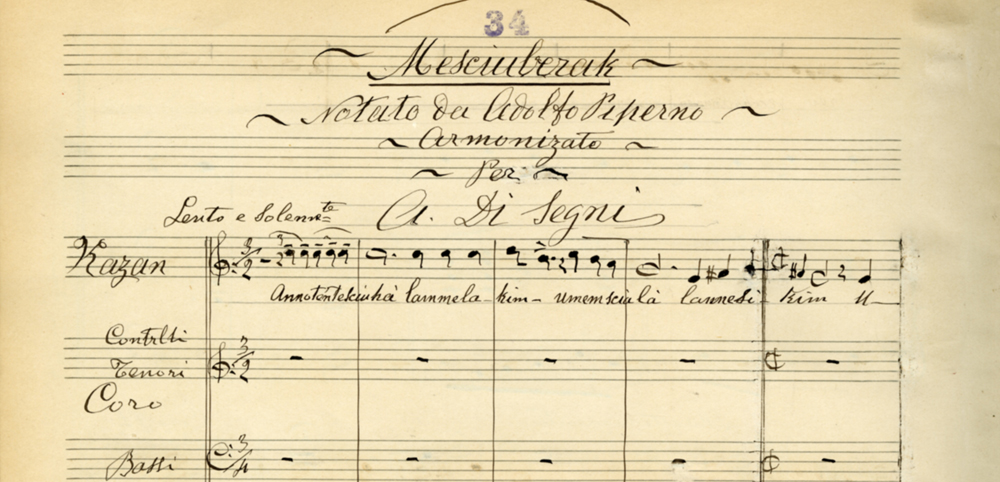 34
~ Mesciuberak ~
~ Notato da Adolfo Piperno ~
~ Armonizato ~
~ Per ~
Lento e Solennte A. Di Segni
Kazan
3/2
Annotentesciuhà lammela-kim-umemscialà lannesi kim U
Contrlti
Tenori
3/2
Coro
Bassi
3/4